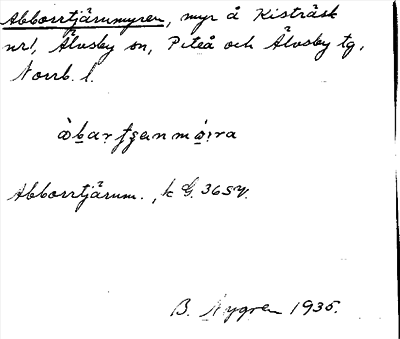 Abborrtjärnmyren, myr å Kisträsk
nr 1, Älvsby sn, Piteå och Älvsby tg,
Norrb. l.
Abborrtjärnm., k G. 36 SV.
B. Nygren 1935.